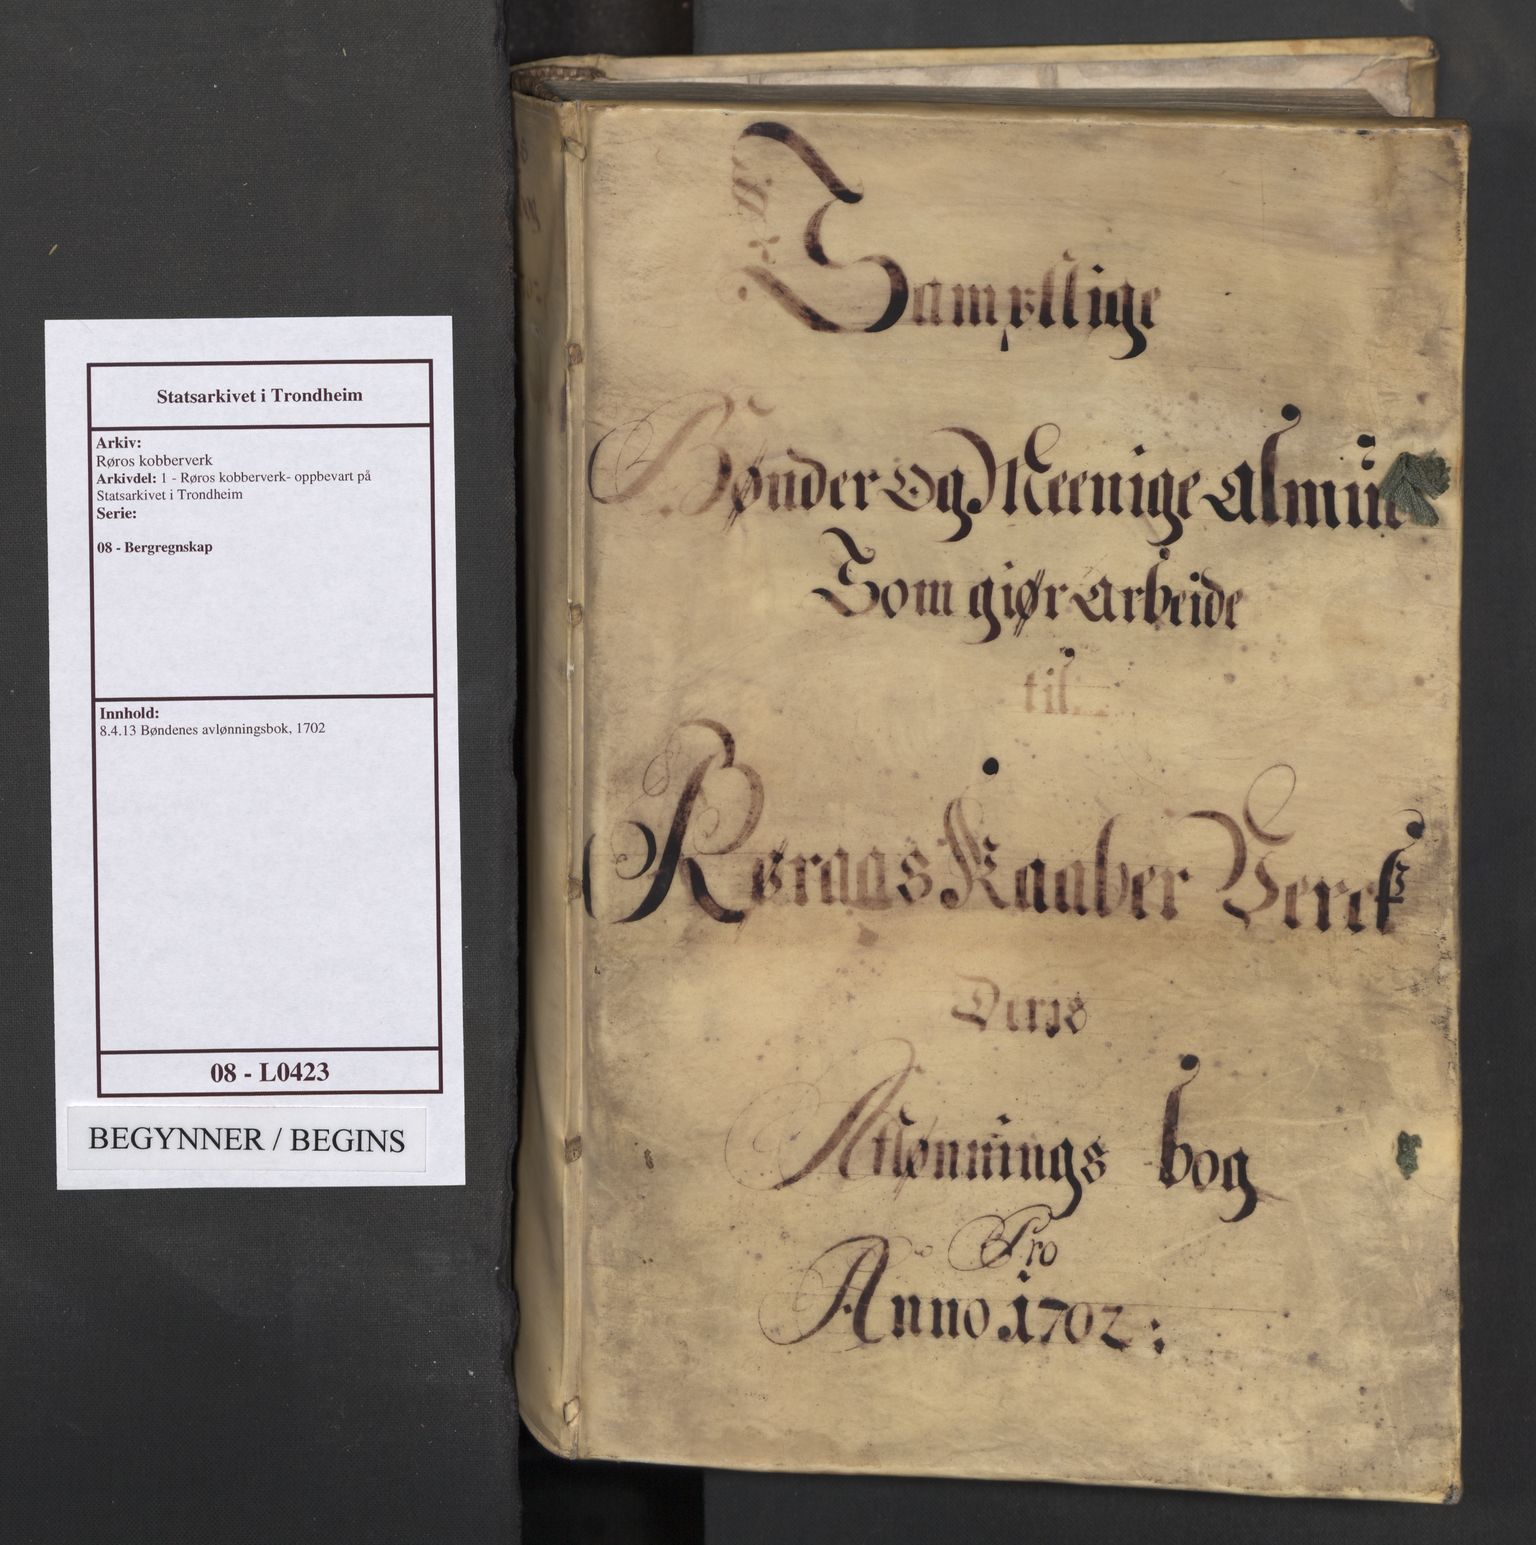 Statsarkivet i Trondheim
Arkiv:
Røros kobberverk
Arkivdel: 1 - Røros kobberverk- oppbevart på
Statsarkivet i Trondheim
Serie:
08 - Bergregnskap
Innhold:
8.4.13 Bøndenes avlønningsbok, 1702
08 - L0423
BEGYNNER / BEGINS
Samptlige
Bønder og Meenige Almu
Som giør Arbeide
til
Røraas Kaaber Verck
Deris
Aflønnings bog
Pro
Anno 1702: